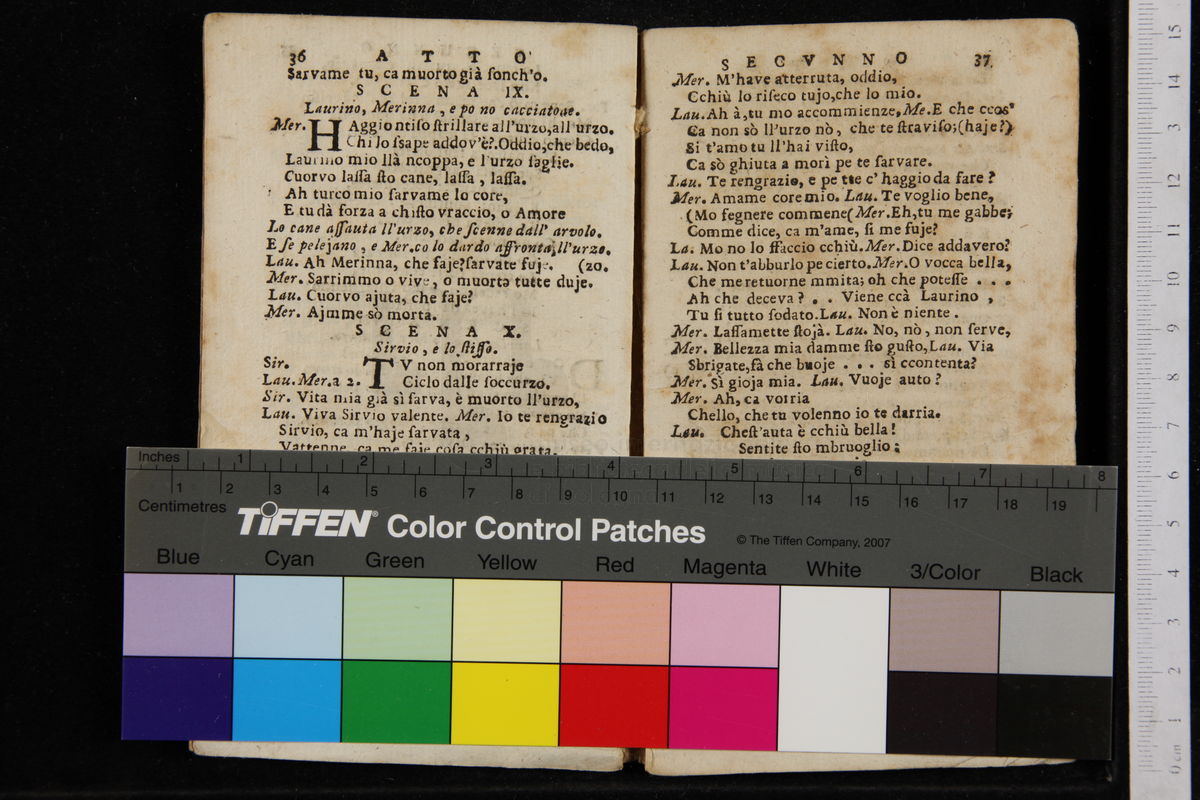 36 A T T O
Sarvame tu, ca muorto già sonch'o.
S C E N A IX.
Laurino, Merinna, e po no cacciatore.
Mer. HAggio ntiso strillare all'urzo, all'urzo.
Chi lo ssape addov'è?. Oddio, che bedo,
Laurino mio llà ncoppa, e l'urzo saglie.
Cuorvo lassa sto cane, lassa, lassa.
Ah turco mio sarvame lo core,
E tu dà forza a chisto vraccio, o Amore
Lo cane assauta ll'urzo, che scenne dall' arvolo.
E se pelejano, e Mer. co lo dardo affronta ll'urzo.
Lau. Ah Merinna, che faje? sarvate fuje. (zo.
Mer. Sarrimmo o vive, o muorte tutte duje.
Lau. Cuorvo ajuta, che faje?
Mer. Ajmme sò morta.
S C E N A X.
Sirvio, e lo stisso.
Sir. TV non morarraje
Lau. Mer. a 2. Ciclo dalle soccurzo.
Sir. Vita mia già sì sarva, è muorto ll'urzo,
Lau. Viva Sirvio valente. Mer. Io te rengrazio
Sirvio, ca m'haje sarvata,
Vattenne, ca me faje cosa cchiù grata.
S E C V N N O 37.
Mer. M'have atterruta, oddio,
Cchiù lo riseco tujo, che lo mio.
Lau. Ah à, tu mo accommienze, Me. E che ccos'
Ca non sò ll'urzo nò, che te straviso; (haje?)
Si t'amo tu ll'hai visto,
Ca sò ghiuta a morì pe te sarvare.
Lau. Te rengrazio, e pe tte c' haggio da fare?
Mer. Amame core mio. Lau. Te voglio bene,
(Mo fegnere commene( Mer. Eh, tu me gabbe;
Comme dice, ca m'ame, si me fuje?
La. Mo no lo sfaccio cchiù. Mer. Dice addavero?
Lau. Non t'abburlo pe cierto. Mer. O vocca bella,
Che me retuorne mmita; oh che potesse . . .
Ah che deceva? . . Viene ccà Laurino,
Tu si tutto sodato. Lau. Non è niente.
Mer. Lassamette stojà. Lau. No, nò, non serve,
Mer. Bellezza mia damme sto gusto, Lau. Via
Sbrigate, fà che buoje . . . sì ccontenta?
Mer. Sì gioja mia. Lau. Vuoje auto?
Mer. Ah, ca vorria
Chello, che tu volenno io te darria.
Lau. Chest'auta è cchiù bella!
Sentite sto mbruoglio:
Inches 1 2 3 4 5 6 7 8
1 2 3 4 5 6 7 8 9 10 11 12 13 14 15 16 17 18 19
Centimetres
TIFFEN® Color Control Patches © The Tiffen Company, 2007
Blue Cyan Green Yellow Red Magenta White 3/Color Black
15 14 3 12 11 10 9 8 7 6 5 4 3 2 1 0 cm